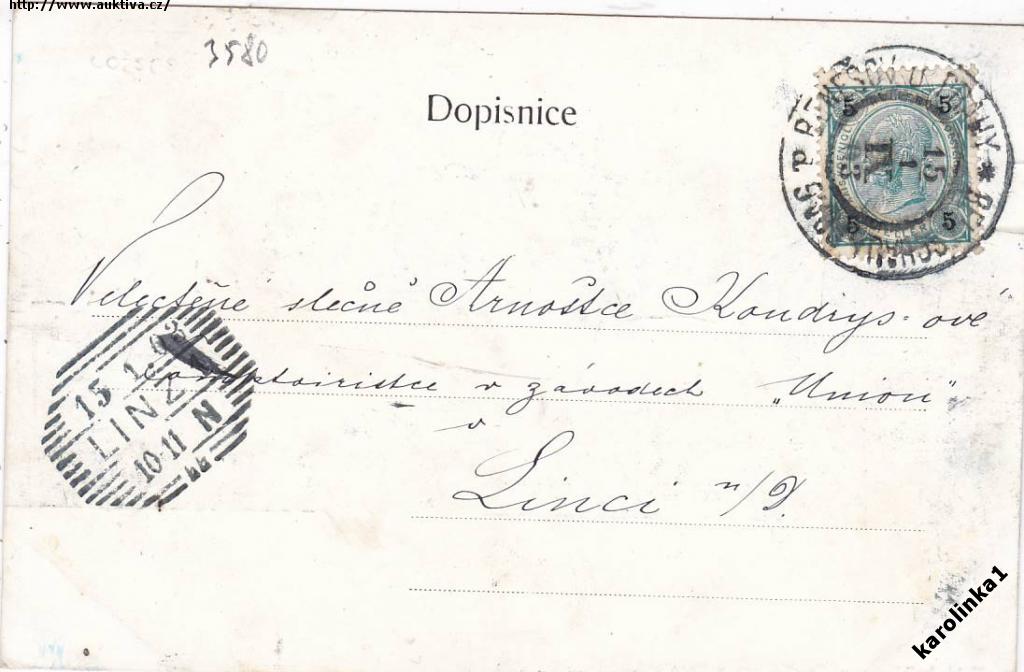 http://www.auktiva.cz/
3580
Dopisnice
5 5
15
1
IX
5 5
Velectěné slečně Arnoštce Kondrys-ové
v závodech „Union"
v
Linci n/D.
15 1
LINZ
10-11 N
karolinka1